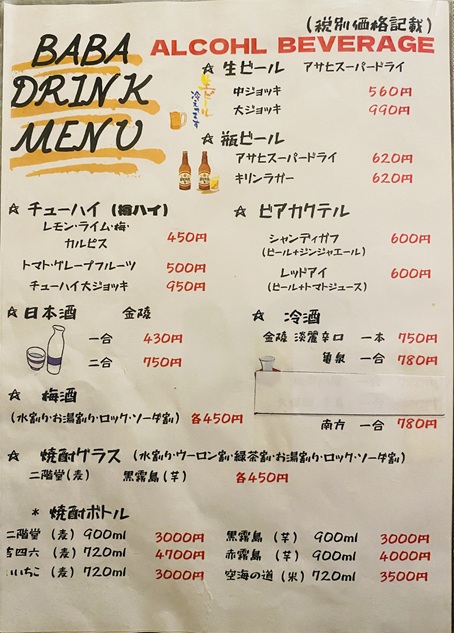 (税別価格記載)
BABA
DRINK
MENU
ALCOHL BEVERAGE
☆ 生ビール アサヒスーパードライ
中ジョッキ 560円
大ジョッキ 990円
☆ 瓶ビール
アサヒスーパードライ 620円
キリンラガー 620円
☆ チューハイ (樽ハイ)
レモン・ライム・梅・
カルピス 450円
トマト・グレープフルーツ 500円
チューハイ大ジョッキ 950円
☆ ビアカクテル
シャンディガフ 600円
(ビール+ジンジャエール)
レッドアイ 600円
(ビール+トマトジュース)
☆ 日本酒 金陵
一合 430円
二合 750円
☆ 冷酒
金陵 淡麗辛口 一本 750円
亀泉 一合 780円
南方 一合 780円
☆ 梅酒
(水割り・お湯割り・ロック・ソーダ割) 各450円
☆ 焼酎グラス (水割り・ウーロン割・緑茶割・お湯割り・ロック・ソーダ割)
二階堂(麦) 黒霧島(芋) 各450円
* 焼酎ボトル
二階堂 (麦) 900ml 3000円
吉四六 (麦) 720ml 4700円
いいちこ (麦) 720ml 3000円
黒霧島 (芋) 900ml 3000円
赤霧島 (芋) 900ml 4000円
空海の道 (米) 720ml 3500円